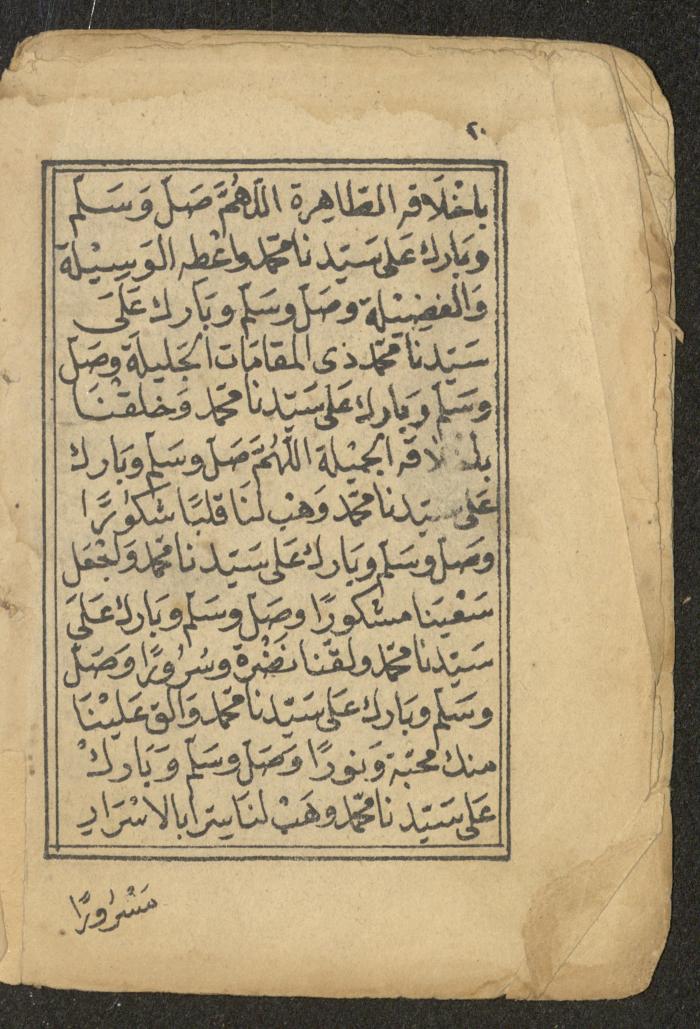 ٢٠
باخْلَاقهِ الطّاهِرة اللّهُمَّ صَلّ وَسَلّم
وبَارك عَلى سَيّدنا محمّد واعْطِه الوَسِيْلة
وَالفضِيْلة وصَلّ وسَلّم وبَارك عَلَى
سَيّدنا محمّد ذى المقامَات الجَليلَة وصَلّ
وسَلّم وبَارك عَلى سَيّدنا محمّد وَخلّقْنَا
باخلاقه الجميْلة اللّهُمَّ صَلّ وسَلّم وبَارك
عَلى سيّدنا محمّد وَهَبْ لنَا قلبًا شكوُرًا
وصَلّ وسَلّم وبَارك عَلى سَيّدنا محمّد وَاجْعَل
سَعْيَنا مشكورًا وصَلّ وسَلّم وبَارك عَلىَ
سَيّدنا محمّد ولقّنا نَضْرة وسُرُورًا وَصَلّ
وسَلّم وبَارك عَلى سَيّدنا محمّد وَالق عَليْنَا
منك محبّة وَنورًا وَصَلّ وسَلّم وَبَارك
عَلى سَيّدنا محمّد وهَبْ لنَا سِرا بالاسْرَارِ
مَسْرُورًا